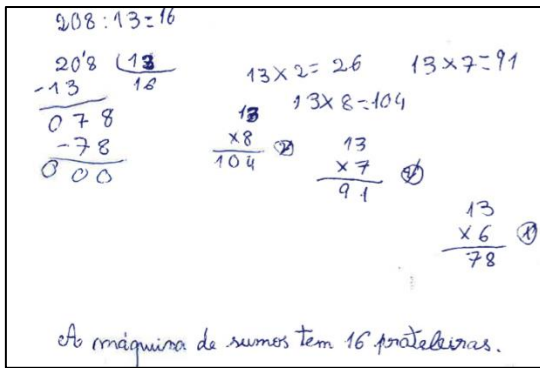 208 : 13 = 16
20'8 13
-13 16
078
-78
000
13 × 2 = 26
13 × 7 = 91
13 × 8 = 104
13
×8
104
13
×7
91
13
×6
78
A máquina de sumos tem 16 prateleiras.